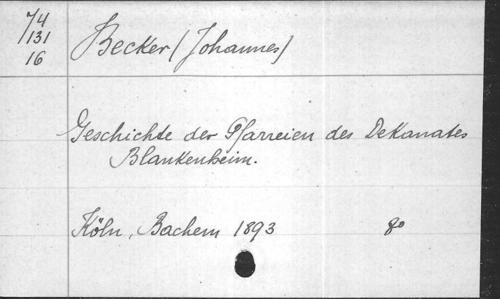 74
131
16
Becker (Johannes)
Geschichte der Pfarreien des Dekanates
Blankenheim.
Köln, Bachem 1893 8°